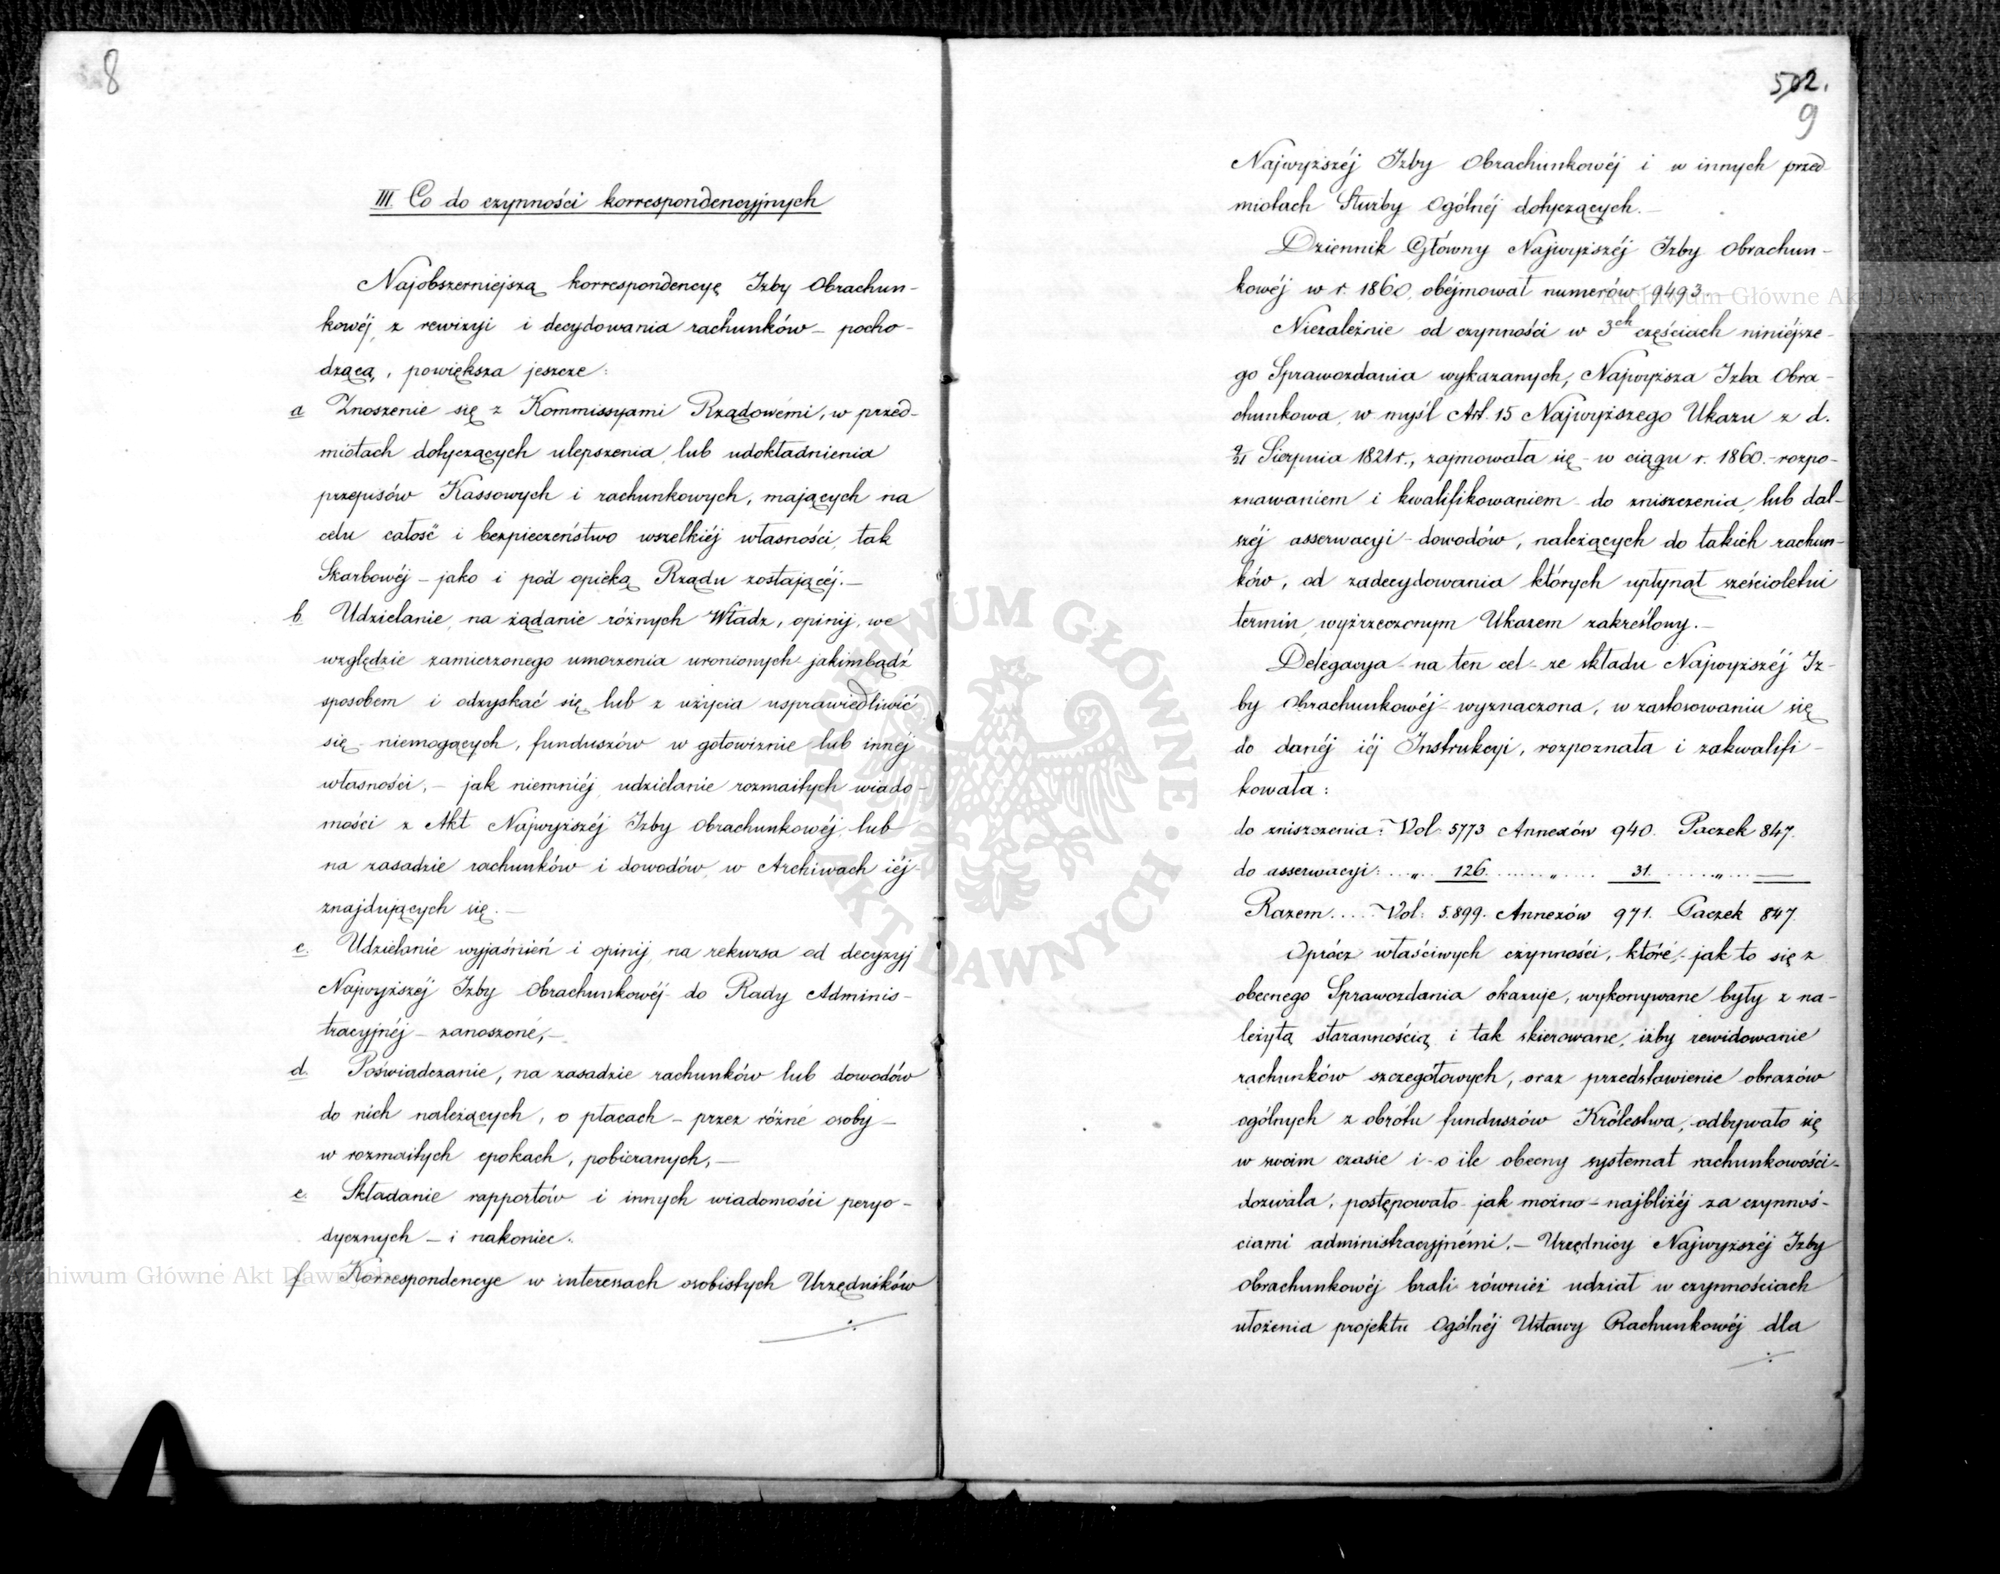 8
III. Co do czynności korrespondencyjnych
Najobszerniejszą korrespondencyę Izby Obrachun-
kowéj, z rewizyi i decydowania rachunków – pocho-
dzącą, powiększa jeszcze:
a Znoszenie się z Kommissyami Rządowémi, w przed-
miotach dotyczących ulepszenia lub udokładnienia
przepisów Kassowych i rachunkowych, mających na
celu całość i bezpieczeństwo wszelkiéj własności, tak
Skarbowéj – jako i pod opieką Rządu zostającéj. –
b. Udzielanie, na żądanie różnych Władz, opinij, we
względzie zamierzonego umorzenia uronionych jakimbądź
sposobem i odzyskać się lub z użycia usprawiedliwić
się niemogących, funduszów w gotowiznie lub innéj
własności, – jak niemniéj udzielanie rozmaitych wiado-
mości z Akt Najwyższéj Izby Obrachunkowéj lub
na zasadzie rachunków i dowodów w Archiwach iéj
znajdujących się. –
c. Udzielanie wyjaśnień i opinij, na rekursa od decyzyj
Najwyższéj Izby Obrachunkowéj do Rady Adminis-
tracyjnéj – zanoszoné, –
d. Poświadczanie, na zasadzie rachunków lub dowodów
do nich należących, o płacach – przez różné osoby –
w rozmaitych epokach, pobieranych, –
e. Składanie rapportów i innych wiadomości peryo-
dycznych – i nakoniec.
f Korrespondencye w interesach osobistych Urzędników
502.
9
Najwyższéj Izby Obrachunkowéj i w innych przed-
miotach Służby Ogólnéj dotyczących. –
Dziennik Główny Najwyższéj Izby Obrachun-
kowéj w r. 1860, obéjmował numerów 9493. –
Niezależnie od czynności w 3ch częściach niniéjsze-
go Sprawozdania wykazanych, Najwyższa Izba Obra-
chunkowa, w myśl Art. 15 Najwyższego Ukazu z d.
9/21 Sierpnia 1821 r., zajmowała się w ciągu r. 1860. – rozpo-
znawaniem i kwalifikowaniem do zniszczenia, lub dal-
széj asserwacyi – dowodów, należących do takich rachun-
ków, od zadecydowania których upłynął sześcioletni
termin, wyżrzeczonym Ukazem zakreślony. –
Delegacya – na ten cel – ze składu Najwyższéj Iz-
by Obrachunkowéj wyznaczona, w zastosowaniu się
do danéj iéj Instrukcyi, rozpoznała i zakwalifi-
kowała:
do zniszczenia: Vol. 5773 Annexów 940. Paczek 847.
do asserwacyi: .. „ .. 126. ...... „ ..... 31. ...... „ .. ——
Razem .... Vol: 5.899. Annexów 971. Paczek 847.
Oprócz właściwych czynności, któré, jak to się z
obecnego Sprawozdania okazuje, wykonywane były z na-
leżytą starannością i tak skierowane, iżby rewidowanie
rachunków szczegółowych, oraz przedstawienie obrazów
ogólnych z obrotu funduszów Królestwa, odbywało się
w swoim czasie i – o ile obecny systemat rachunkowości –
dozwala, postępowało jak możno – najbliżéj za czynnoś-
ciami administracyjnémi. – Urzędnicy Najwyższéj Izby
Obrachunkowéj brali również udział w czynnościach
ułożenia projektu Ogólnéj Ustawy Rachunkowéj dla
ARCHIWUM GŁÓWNE AKT DAWNYCH
Archiwum Główne Akt Dawnych
Archiwum Główne Akt Dawnych